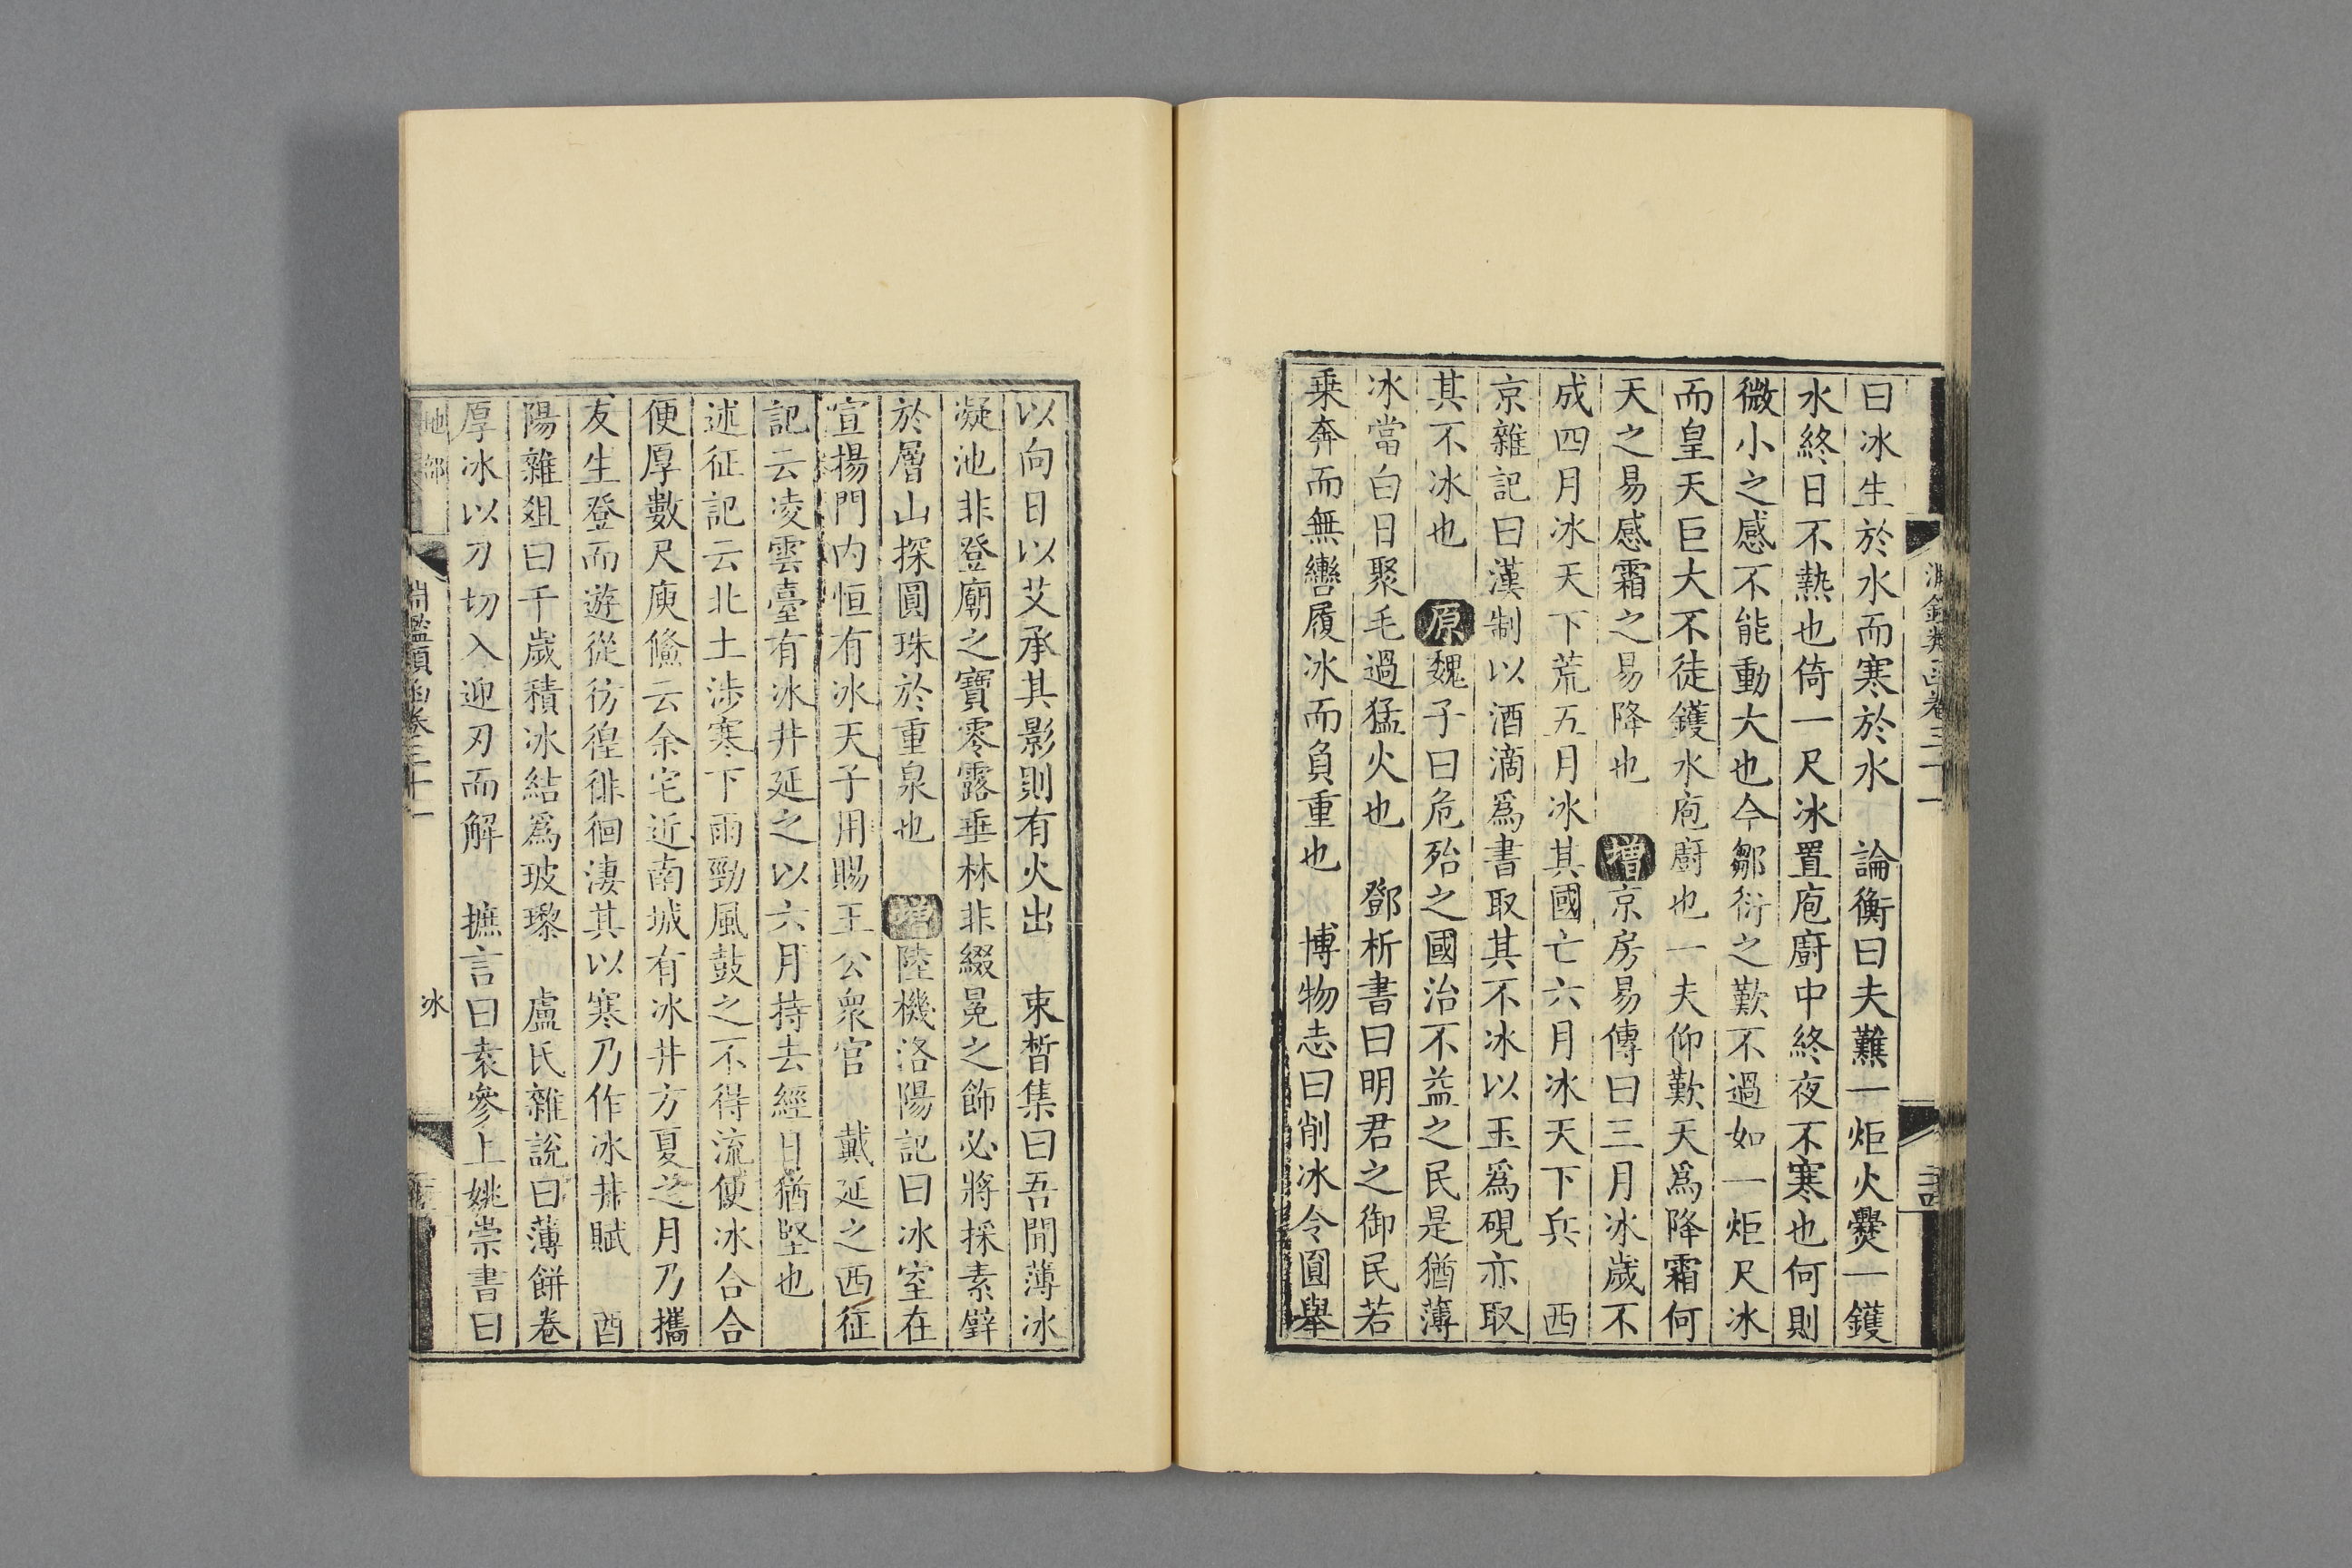 淵鑑類函卷三十一
曰冰生於水而寒於水　論衡曰夫難一炬火爨一鑊
水終日不熱也倚一尺冰置庖廚中終夜不寒也何則
微小之感不能動大也今鄒衍之歎不過如一炬尺冰
而皇天巨大不徒鑊水庖廚也一夫仰歎天爲降霜何
天之易感霜之易降也　增京房易傳曰三月冰歲不
成四月冰天下荒五月冰其國亡六月冰天下兵　西
京雜記曰漢制以酒滴爲書取其不冰以玉爲硯亦取
其不冰也　原魏子曰危殆之國治不益之民是猶薄
冰當白日聚毛過猛火也　鄧析書曰明君之御民若
乗奔而無轡履冰而負重也　博物志曰削冰令圓舉
以向日以艾承其影則有火出　束晳集曰吾聞薄冰
凝池非登廟之寶零露垂林非綴冕之飾必將採素璧
於層山探圓珠於重泉也　增陸機洛陽記曰冰室在
宣揚門内恒有冰天子用賜王公衆官　戴延之西征
記云凌雲臺有冰井延之以六月持去經日猶堅也
述征記云北土涉寒下雨勁風鼓之不得流便冰合合
便厚數尺庾儵云余宅近南城有冰井方夏之月乃攜
友生登而遊從彷徨徘徊淒其以寒乃作冰井賦　酉
陽雜俎曰千歲積冰結爲玻瓈　盧氏雜說曰薄餅卷
厚冰以刀切入迎刃而解　摭言曰袁參上姚崇書曰
地部
淵鑑類函卷三十一
冰